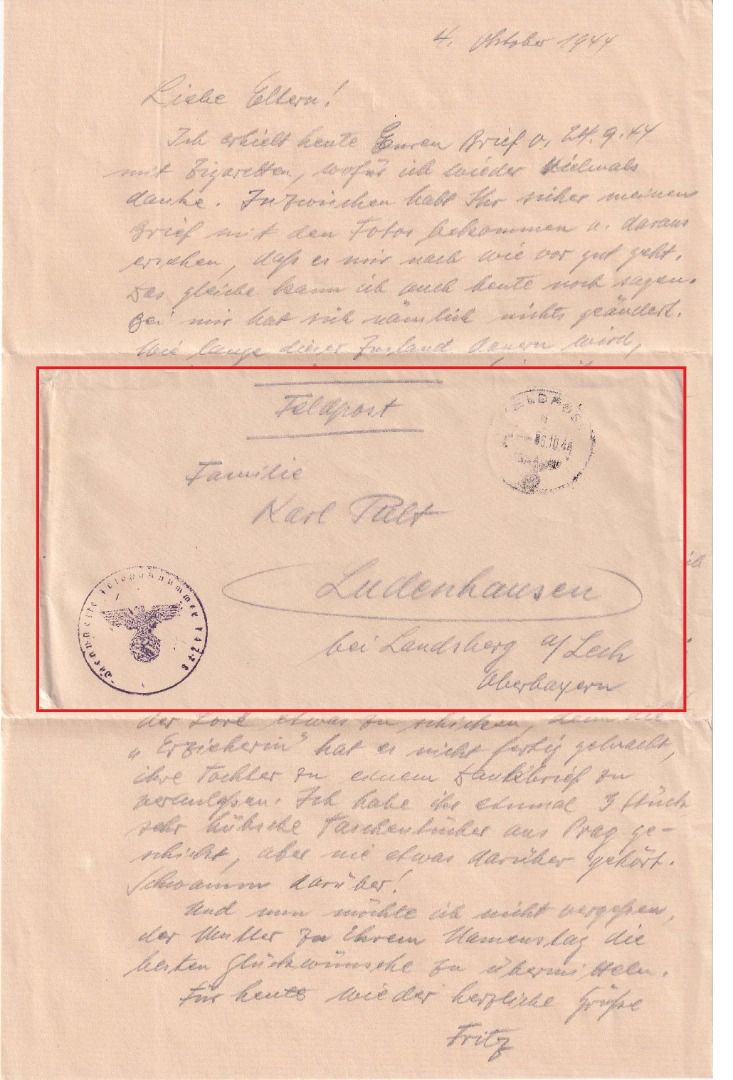 4. Oktober 1944
Liebe Eltern!
Ich erhielt heute Euren Brief v. 24.9.44
mit Zigaretten, wofür ich wieder vielmals
danke. Inzwischen habt Ihr sicher meinen
Brief mit den Fotos bekommen u. daraus
ersehen, daß es mir nach wie vor gut geht.
Das gleiche kann ich auch heute noch sagen.
Bei mir hat sich nämlich nichts geändert.
Wie lange dieser Zustand dauern wird,
Feldpost
FELDPOST
06.10.44
Familie
Karl
Ludenhausen
bei Landsberg a/Lech
Oberbayern
der Lore etwas zu schicken, denn die
"Erzieherin" hat es nicht fertig gebracht,
ihre Tochter zu einem Dankbrief zu
veranlaßen. Ich habe ihr einmal 3 Stück
sehr hübsche Taschentücher aus Prag ge-
schickt, aber nie etwas darüber gehört.
Schwamm darüber!
Und nun möchte ich nicht vergeßen,
der Mutter zu Ihrem Namenstag die
besten Glückwünsche zu übermitteln.
Für heute wieder herzliche Grüße
Fritz